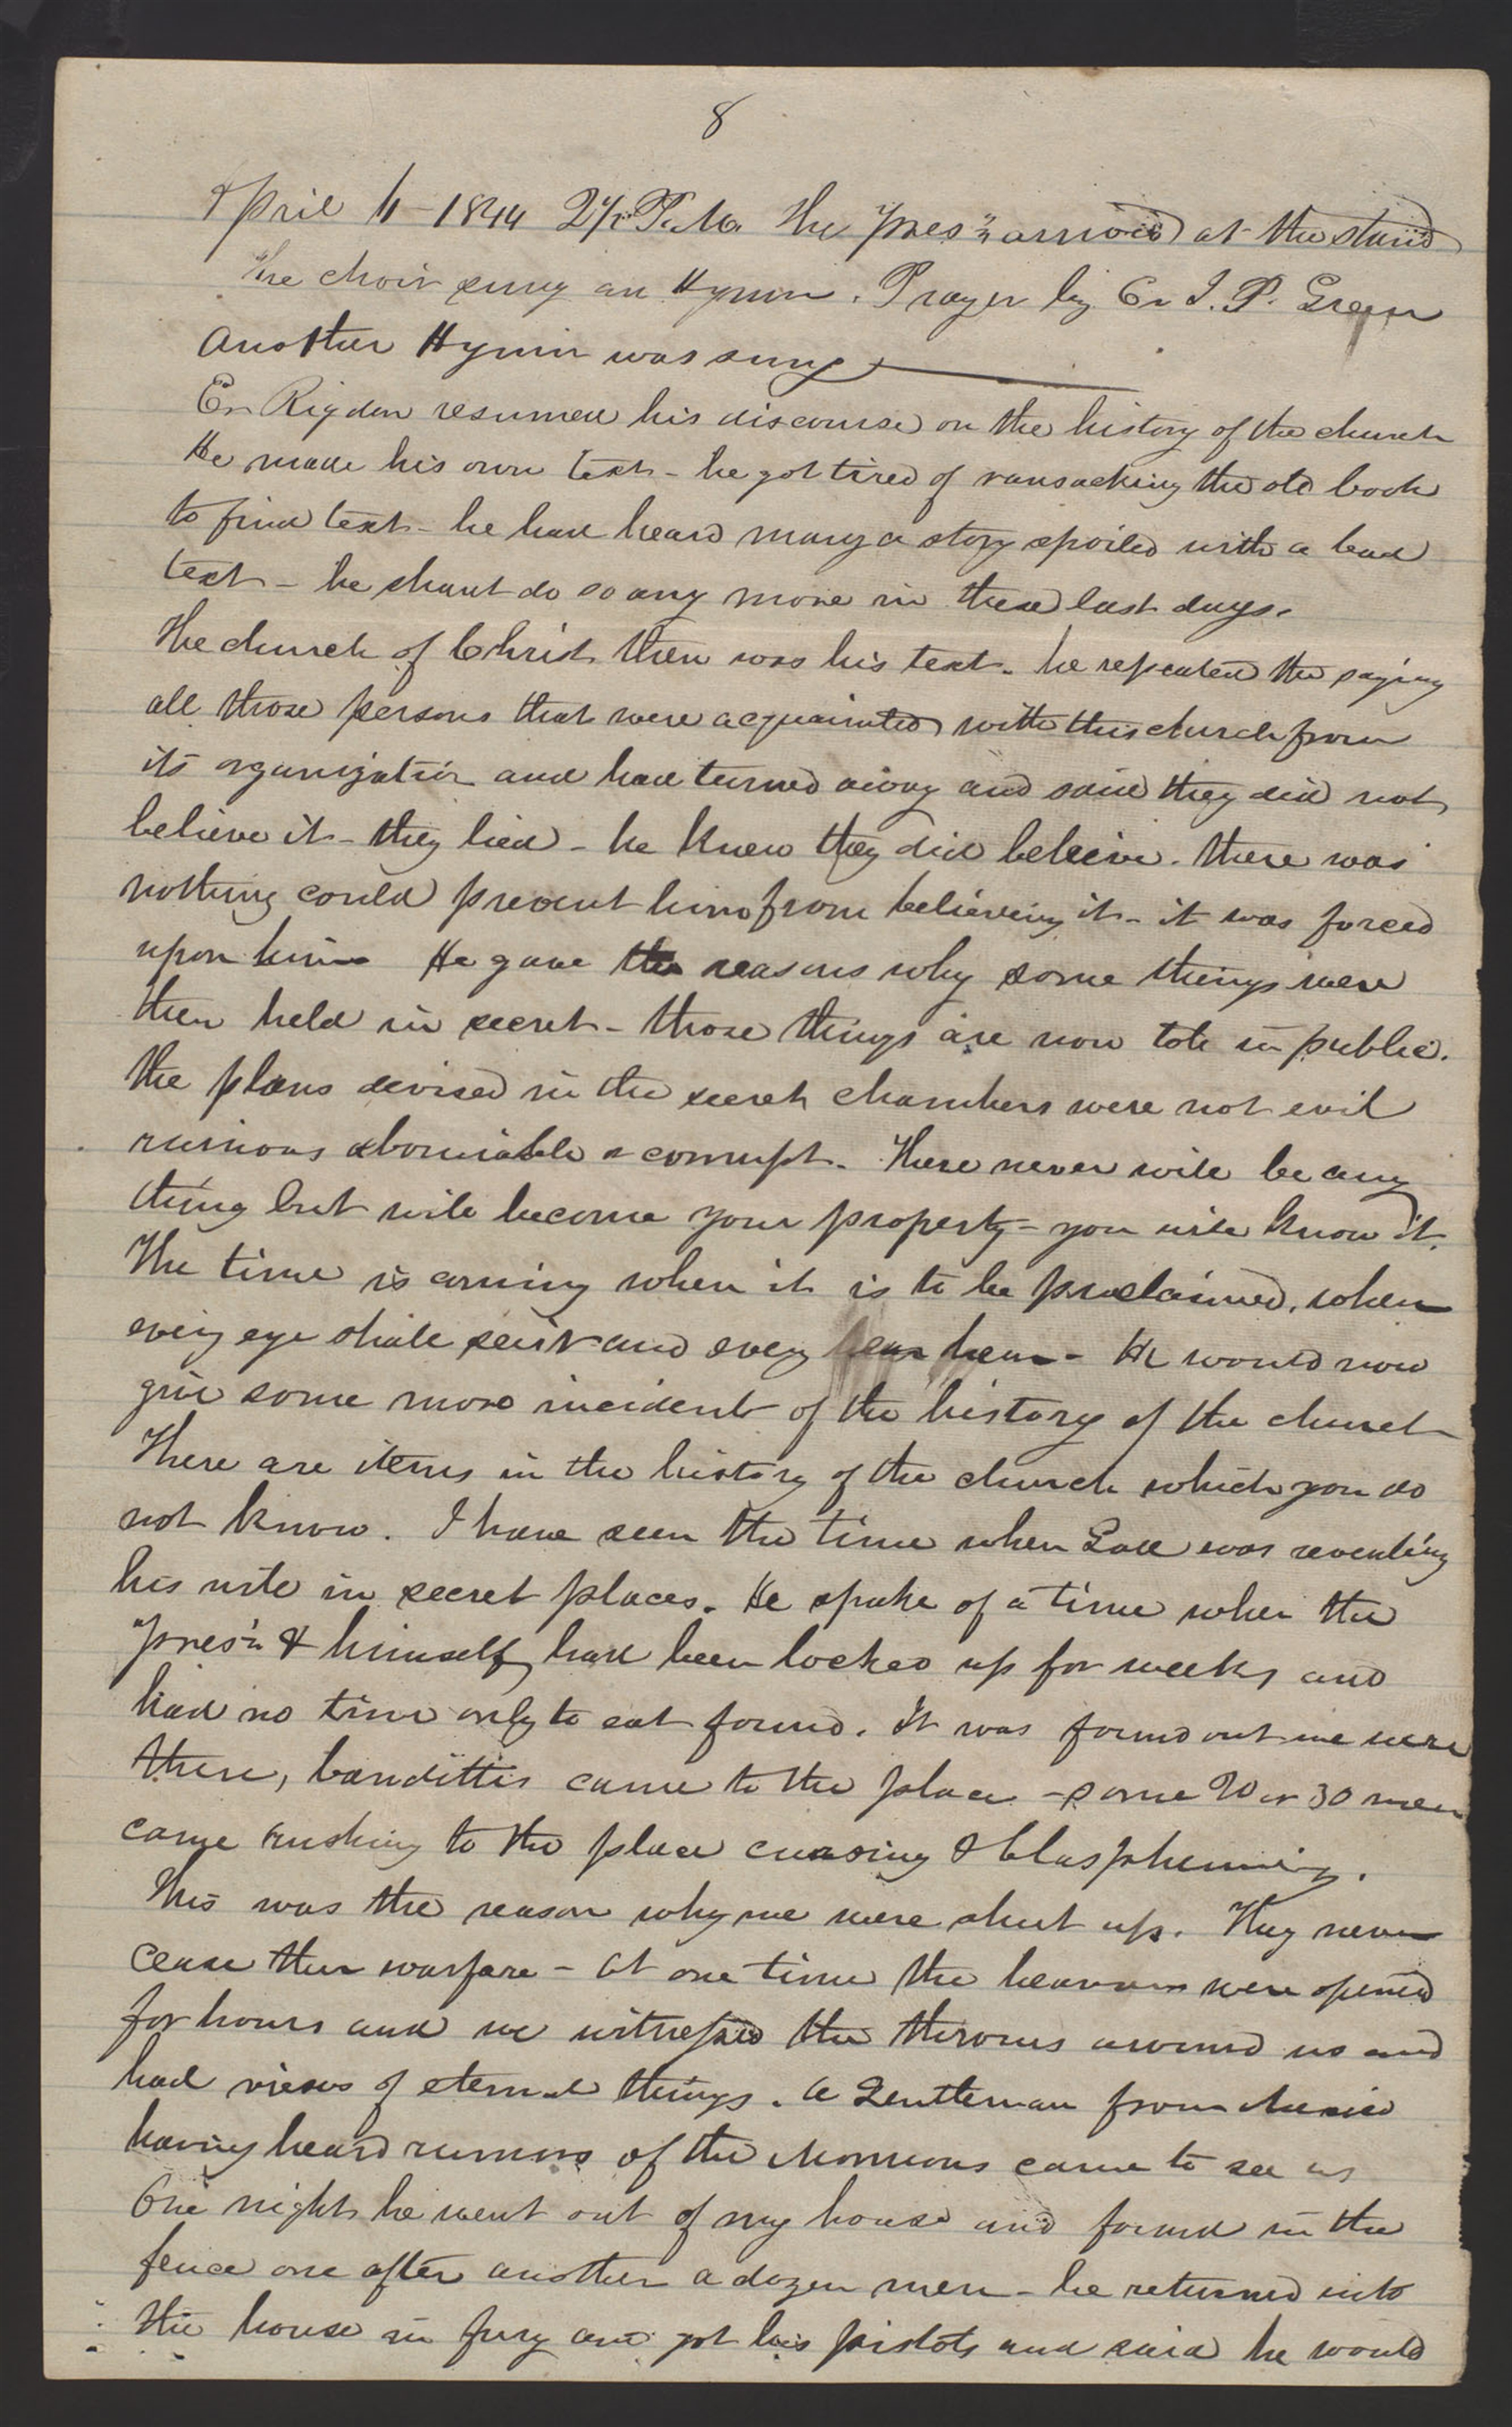 8
April 6 - 1844 2¼ P.M. The Presⁿ arrived at the stand
The choir sung an Hymn. Prayer by Er J. P. Green
Another Hymn was sung —
Er Rigdon resumed his discourse on the history of the church
He made his own text - he got tired of ransacking the old book
to find text - he had heard many a story spoiled with a bad
text - he shant do so any more in these last days.
The church of Christ then was his text. he repeated the saying
all those persons that were acquainted with this church from
its organization and had turned away and said they did not
believe it - they lied - he knew they did beleive. there was
nothing could prevent him from believeing it - it was forced
upon him He gave the reasons why some things were
then held in secret - those things are now told in public.
the plans devised in the secret chambers were not evil
ruinous abominable & corrupt. There never will be any
thing but will become your property - you will know it.
The time is coming when it is to be proclaimed. when
every eye shall see it and every hear - He would now
give some more incident of the history of the church
There are items in the history of the church which you do
not know. I have seen the time when God was revealing
his will in secret places. He spoke of a time when the
Presⁿ & himself had been locked up for weeks and
had no time only to eat found. It was found out we were
there, bandittis came to the place - some 20 or 30 men
came rushing to the place cursing & blaspheming.
This was the reason why we were shut up. They never
cease their warfare - at one time the heavens were opened
for hours and we witnessed the thrones around us and
had views of eternal things. a Gentleman from Mexico
having heard rumors of the Mormons came to see us
One night he went out of my house and found in the
fence one after another a dozen men - he returned into
the house in fury and got his pistols and said he would